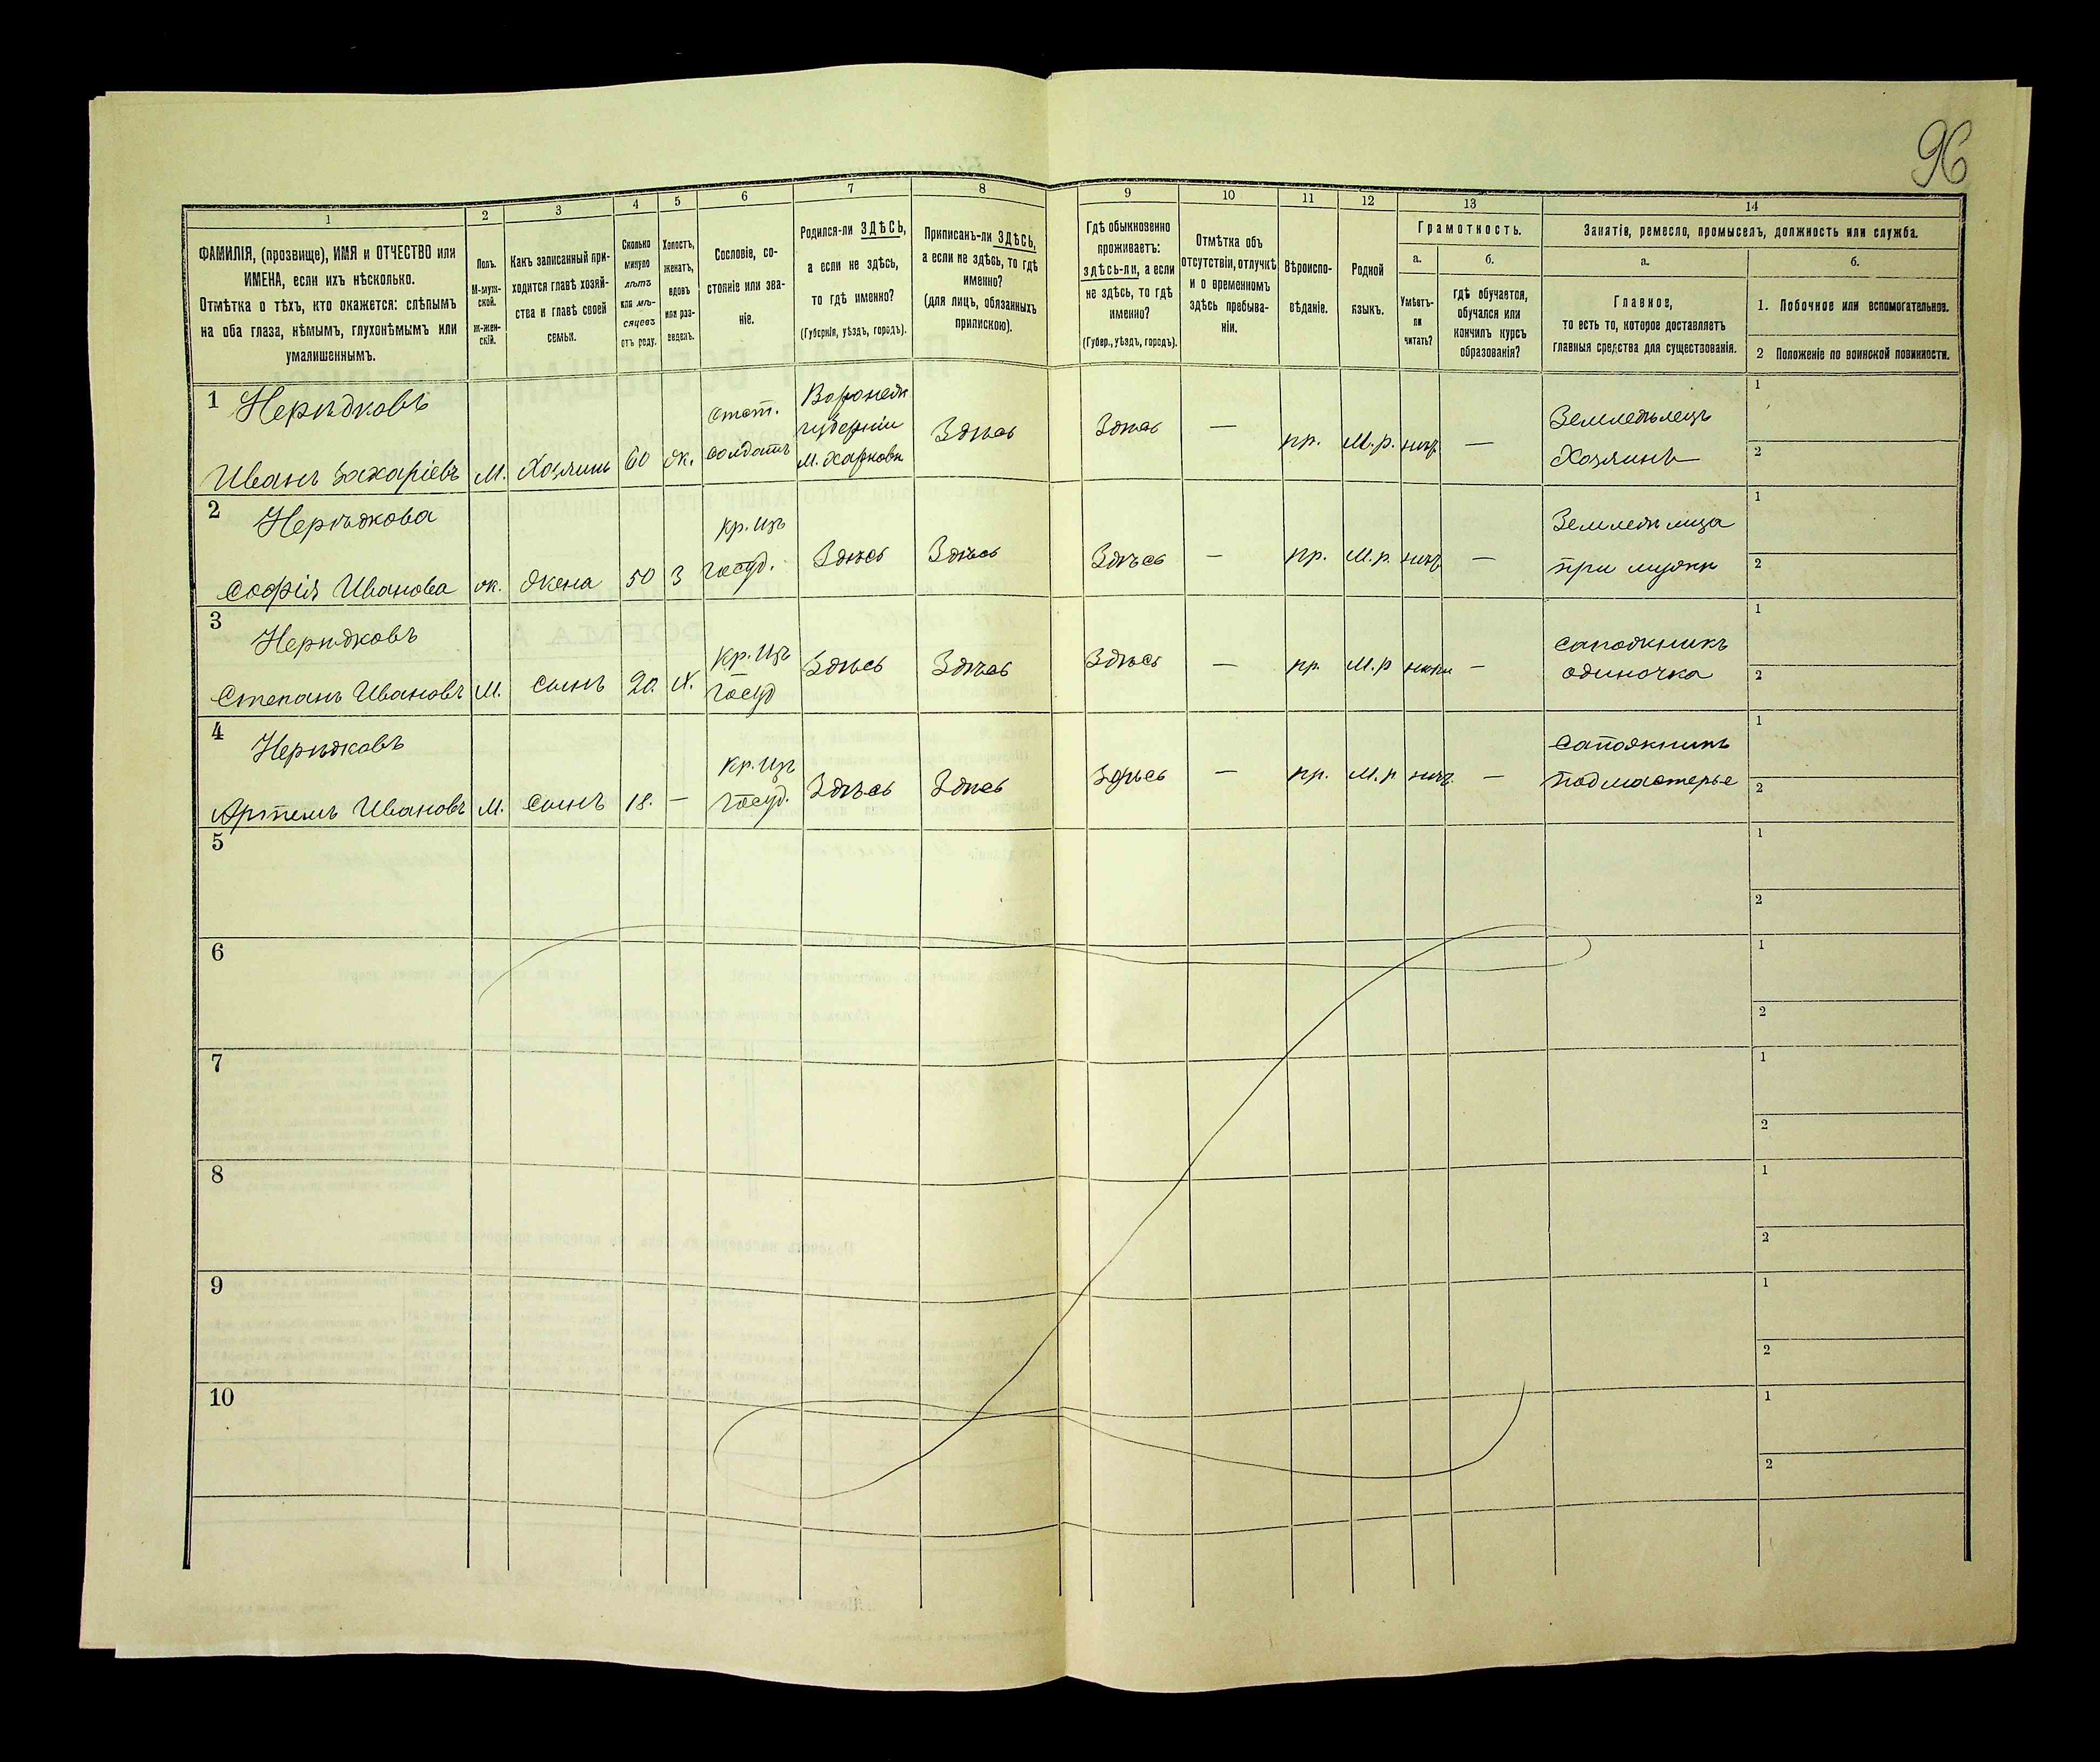 96
1
2
3
4
5
6
7
8
9
10
11
12
13
14
ФАМИЛІЯ, (прозвище), ИМЯ и ОТЧЕСТВО или
ИМЕНА, если ихъ нѣсколько.
Отмѣтка о тѣхъ, кто окажется: слѣпымъ
на оба глаза, нѣмымъ, глухонѣмымъ или
умалишеннымъ.
Полъ.
М-муж-
ской.
Ж-жен-
скій.
Какъ записанный при-
ходится главѣ хозяй-
ства и главѣ своей
семьи.
Сколько
минуло
лѣтъ
или мѣ-
сяцевъ
отъ роду.
Холостъ,
женатъ,
вдовъ
или раз-
веденъ.
Сословіе, со-
стояніе или зва-
ніе.
Родился-ли ЗДѢСЬ,
а если не здѣсь,
то гдѣ именно?
(Губернія, уѣздъ, городъ).
Приписанъ-ли ЗДѢСЬ,
а если не здѣсь, то гдѣ
именно?
(для лицъ, обязанныхъ
припискою).
Гдѣ обыкновенно
проживаетъ:
здѣсь-ли, а если
не здѣсь, то гдѣ
именно?
(Губер., уѣздъ, городъ).
Отмѣтка объ
отсутствіи, отлучкѣ
и о временномъ
здѣсь пребыва-
ніи.
Вѣроиспо-
вѣданіе.
Родной
языкъ.
Грамотность.
а.
Умѣетъ-
ли
читать?
б.
гдѣ обучается,
обучался или
кончилъ курсъ
образованія?
Занятіе, ремесло, промыселъ, должность или служба.
а.
Главное,
то есть то, которое доставляетъ
главныя средства для существованія.
б.
1. Побочное или вспомогательное.
2 Положеніе по воинской повинности.
1 Нерѣдковъ
Иванъ Захаріевъ
М.
Хозяинъ
60
ж.
отст.
солдатъ
губерніи
Здѣсь
Здѣсь
—
пр.
М.р.
—
Земледѣлецъ
Хозяинъ
1
2
2 Нерѣдкова
Софія Иванова
ж.
Жена
50
З
кр. изъ
госуд.
Здѣсь
Здѣсь
Здѣсь
—
пр.
М.р.
—
при мужѣ
1
2
3 Нерѣдковъ
Степанъ Ивановъ
М.
сынъ
20.
Х.
кр. изъ
госуд
Здѣсь
Здѣсь
Здѣсь
—
пр.
М.р
—
сапожникъ
одиночка
1
2
4 Нерѣдковъ
Артемъ Ивановъ
М.
сынъ
18.
—
кр. изъ
госуд.
Здѣсь
Здѣсь
Здѣсь
—
пр.
М.р
—
сапожникъ
подмастерье
1
2
5
1
2
6
1
2
7
1
2
8
1
2
9
1
2
10
1
2